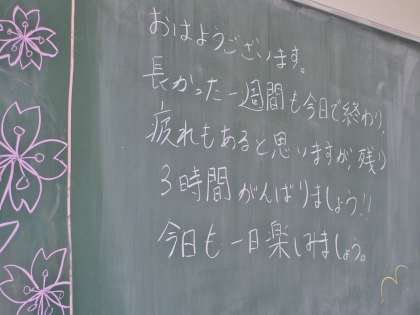 おはようございます。
長かった一週間も今日で終わり、
疲れもあると思いますが、残り
3時間がんばりましょう!!
今日も一日楽しみましょう。